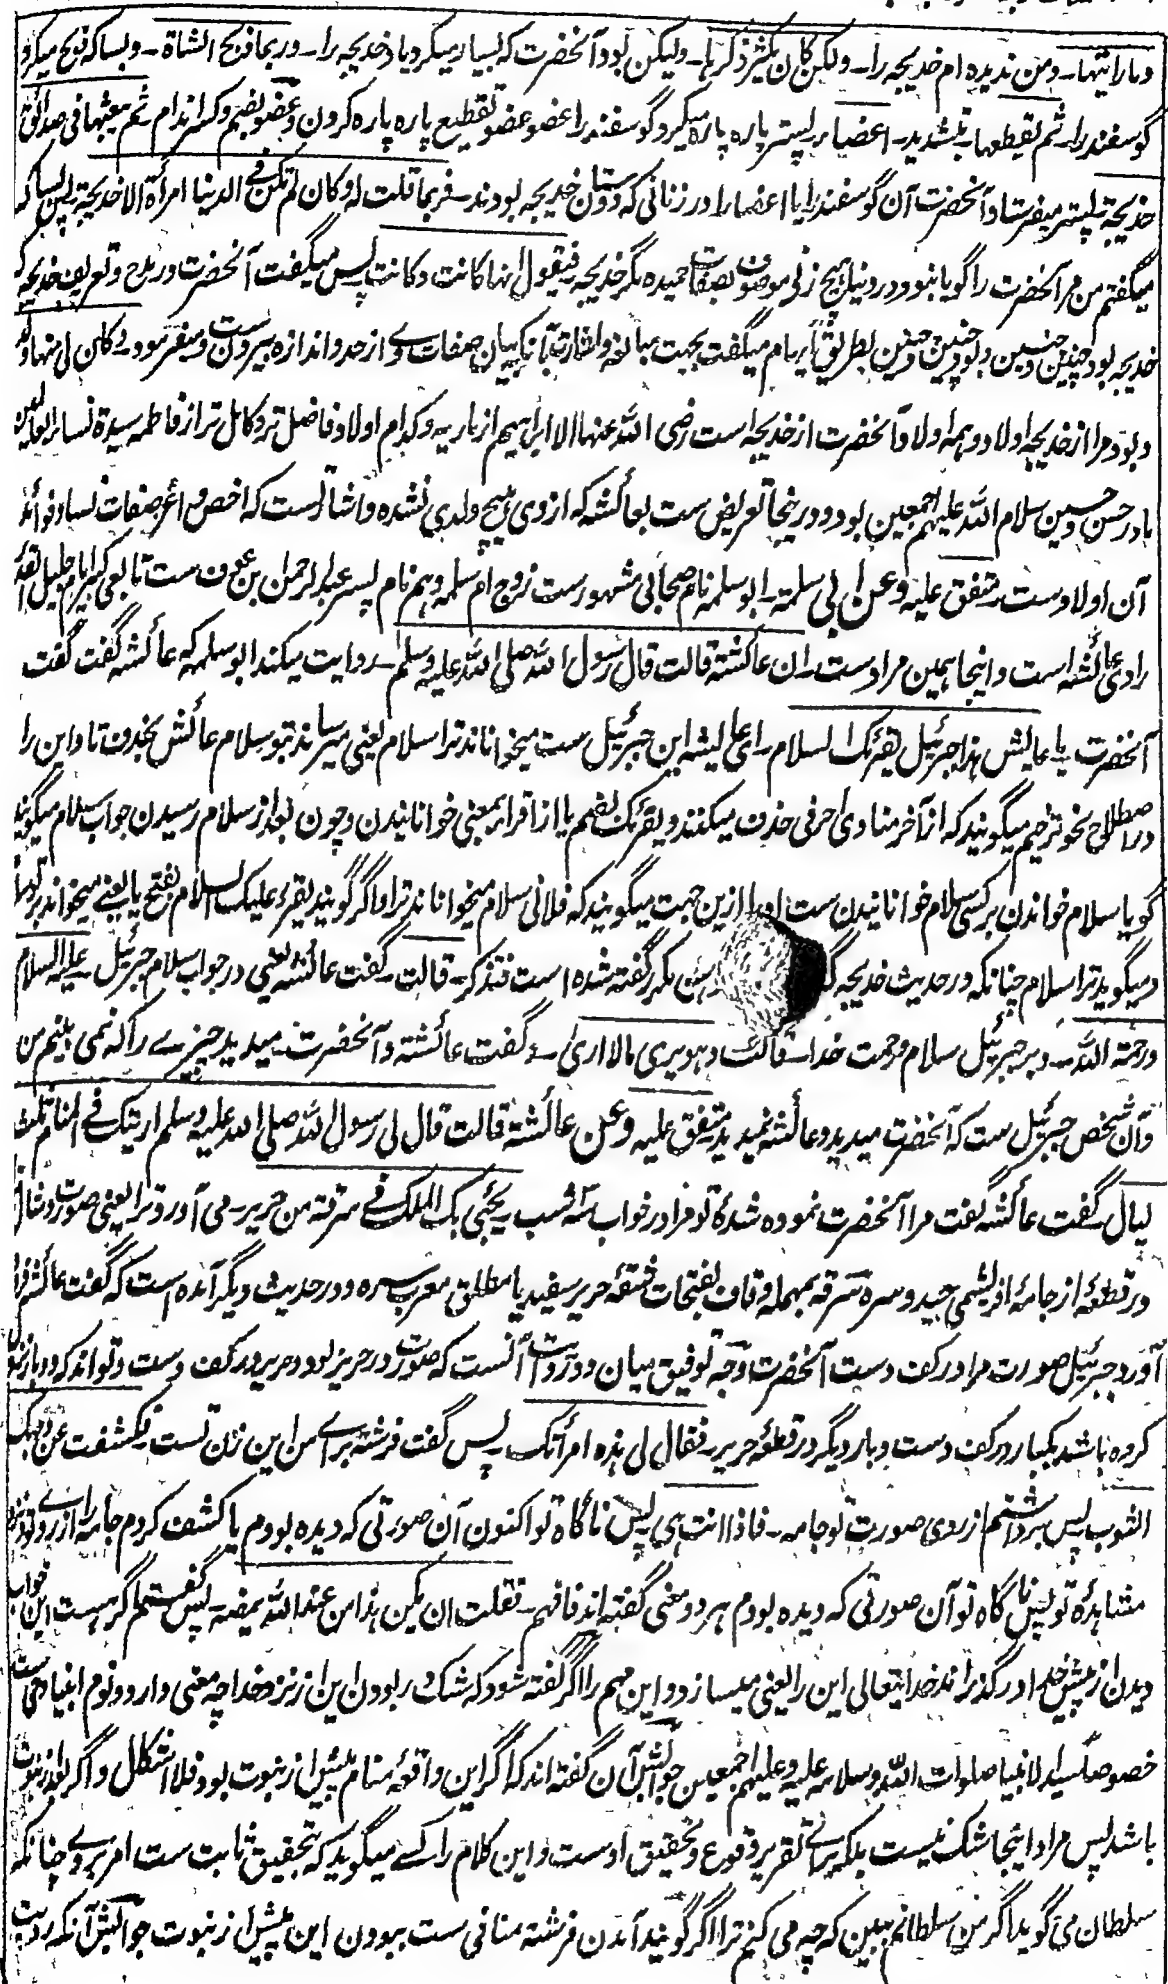 وما رایتها ـ ومن ندیده ام خدیجه را ـ ولکن کان یکثر ذکرها ـ ولیکن بود آنحضرت که بسیار میکرد یاد خدیجه را ـ وربما ذبح الشاة ـ و بسا که ذبح میکرد
گوسفند را ـ ثم یقطعها بتشدید ـ اعضا ـ پستر پاره پاره میکرد گوسفند را عضو عضو تقطیع پاره پاره کردن و عضو بضم و کسر اندام ثم یبعثها فی صدائق
خدیجة پستر میفرستاد آنحضرت آن گوسفند را یا اعضا را در زنانی که دوستان خدیجه بودند ـ فربما قلت له کان لم تکن فی الدنیا امرأة الا خدیجة پس بسا که
میگفتم من مر آنحضرت را گویا نبود در دنیا هیچ زنی موصوف بصفات حمیده مگر خدیجه فیقول انها کانت و کانت پس میگفت آنحضرت در مدح و تعریف خدیجه که
خدیجه بود چنین و چنین و بود چنین و چنین بطریق ابهام میگفت بجهت مبالغه و اشارت بآنکه بیان صفات وے از حد و اندازه بیرون ست و میفرمود و کان لی منها ولد
و بود مرا از خدیجه اولاد و همه اولاد آنحضرت از خدیجه است رضی الله عنها الا ابراهیم از ماریه و کدام اولاد فاضل تر و کامل تر از فاطمه سیدة نساء العالمین
مادر حسن و حسین سلام الله علیهم اجمعین بود و درینجا تعریض ست بعائشه که از وی هیچ ولدی نشده و اشارت ست که اخص و اعز صفات نسا و فوائد
آن اولادست متفق علیه وعن ابی سلمة ـ ابو سلمه نام صحابی مشهورست زوج ام سلمه و هم نام پسر عبد الرحمن بن عوف ست تابعی کبیر امام جلیل ثقه
راوی عائشه است و اینجا همین مرادست ـ ان عائشة قالت قال رسول الله صلی الله علیه وسلم ـ روایت میکند ابو سلمه که عائشه گفت گفت
آنحضرت یا عایش هذا جبرئیل یقرئک السلام ـ ای عایشه این جبرئیل ست میخواناند ترا سلام یعنی میرساند بتو سلام عائش بحذف تا و این را
در اصطلاح نحو ترخیم میگویند که از آخر منادی حرفی حذف میکنند و یقرئک بضم یا از اقرا بمعنی خوانانیدن و چون بعد از سلام رسیدن جواب سلام میگویند
گویا سلام خواندن بر کسی سلام خوانانیدن ست او را ازین جهت میگویند که فلانی سلام میخواناند ترا و اگر گویند یقرء علیک السلام بفتح یا یعنی میخواند بر تو
و میگوید ترا سلام چنانکه در حدیث خدیجه مکرر گفته شده است فتذکر ـ قالت ـ گفت عائشه یعنی در جواب سلام جبرئیل ـ علیه السلام
ورحمة الله ـ و بر جبرئیل سلام و رحمت خدا ـ قالت وهو یری مالا اری ـ گفت عائشة و آنحضرت میدید چیزے را که نمی بینم من
و آن شخص جبرئیل ست که آنحضرت میدید و عائشه نمیدید متفق علیه وعن عائشة قالت قال لی رسول الله صلی الله علیه وسلم اریتک فی المنام ثلث
لیال ـ گفت عائشه گفت مرا آنحضرت نموده شدۀ تو مرا در خواب سه شب یجیئ بک الملک فی سرقة من حریر ـ می آورد ترا یعنی صورت و مثال
در قطعۀ از جامۀ ابریشمی جید و سره سرقه بمهمله و قاف بفتحات شقۀ حریر سفید یا مطلق معرب سره و در حدیث دیگر آمده است که گفت عائشه
آورد جبرئیل صورت مرا در کف دست آنحضرت وجه توفیق میان دو روایت آنست که صورت در حریر بود و حریر در کف دست و تواند که دو بار
کرده باشد یکبار در کف دست و بار دیگر در قطعۀ حریر ـ فقال لی هذه امرأتک ـ پس گفت فرشته براے من این زن تست فکشفت عن وجهک
الثوب پس برداشتم از روی صورت تو جامه ـ فاذا انت هی پس ناگاه تو اکنون آن صورتی که دیده بودم یا کشف کردم جامه را از روے تو نزد
مشاهدۀ تو پس ناگاه تو آن صورتی که دیده بودم هر دو معنی گفته اند فافهم ـ فقلت ان یکن هذا من عند الله یمضه ـ پس گفتم اگر هست این خواب
دیدن از پیش خدا در گذراند خدایتعالی این را یعنی میسازد و این مهم را اگر گفته شود که شک در بودن این از نزد خدا چه معنی دارد و نوم انبیا وحی ست
خصوصا سید الانبیا صلوات الله وسلامه علیه وعلیهم اجمعین جوابش آن گفته اند که اگر این واقعۀ منام پیش از نبوت بود فلا اشکال و اگر بعد از نبوت
باشد پس مراد اینجا شک نیست بلکه براے تقریر وقوع و تحقیق اوست و این کلام را کسے میگوید که تحقیق ثابت ست امر بروے چنانکه
سلطان می گوید اگر من سلطانم ببین که چه می کنم ترا اگر گویند آمدن فرشته منافی ست ببودن این پیش از نبوت جوابش آنکه رویت